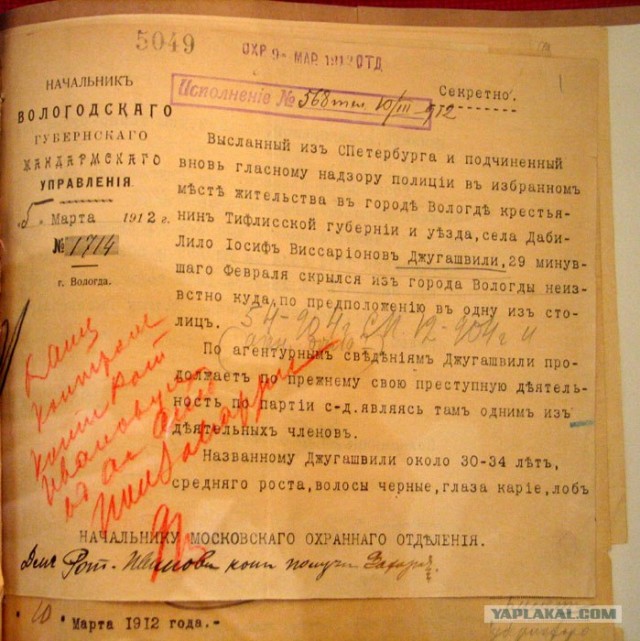 5049
ОХР 9- МАР 1912 ОТД
Исполненіе № 568 10/III 912
Секретно.
НАЧАЛЬНИКЪ
ВОЛОГОДСКАГО
ГУБЕРНСКАГО
ЖАНДАРМСКАГО
УПРАВЛЕНІЯ.
5 Марта 1912 г.
№ 1714
г. Вологда.
Высланный изъ СПетербурга и подчиненный
вновь гласному надзору полиціи въ избранномъ
мѣстѣ жительства въ городѣ Вологдѣ крестья-
нинъ Тифлисской губерніи и уѣзда, села Диди-
Лило Іосифъ Виссаріоновъ Джугашвили, 29 минув-
шаго Февраля скрылся изъ города Вологды неиз-
вѣстно куда, по предположенію въ одну изъ сто-
лицъ.
По агентурнымъ свѣдѣніямъ Джугашвили про-
должаетъ по прежнему свою преступную дѣятель-
ность по партіи с-д. являясь тамъ однимъ изъ
дѣятельныхъ членовъ.
Названному Джугашвили около 30-34 лѣтъ,
средняго роста, волосы черные, глаза каріе, лобъ
НАЧАЛЬНИКУ МОСКОВСКАГО ОХРАННАГО ОТДѢЛЕНІЯ.
10 Марта 1912 года.-
YAPLAKAL.COM